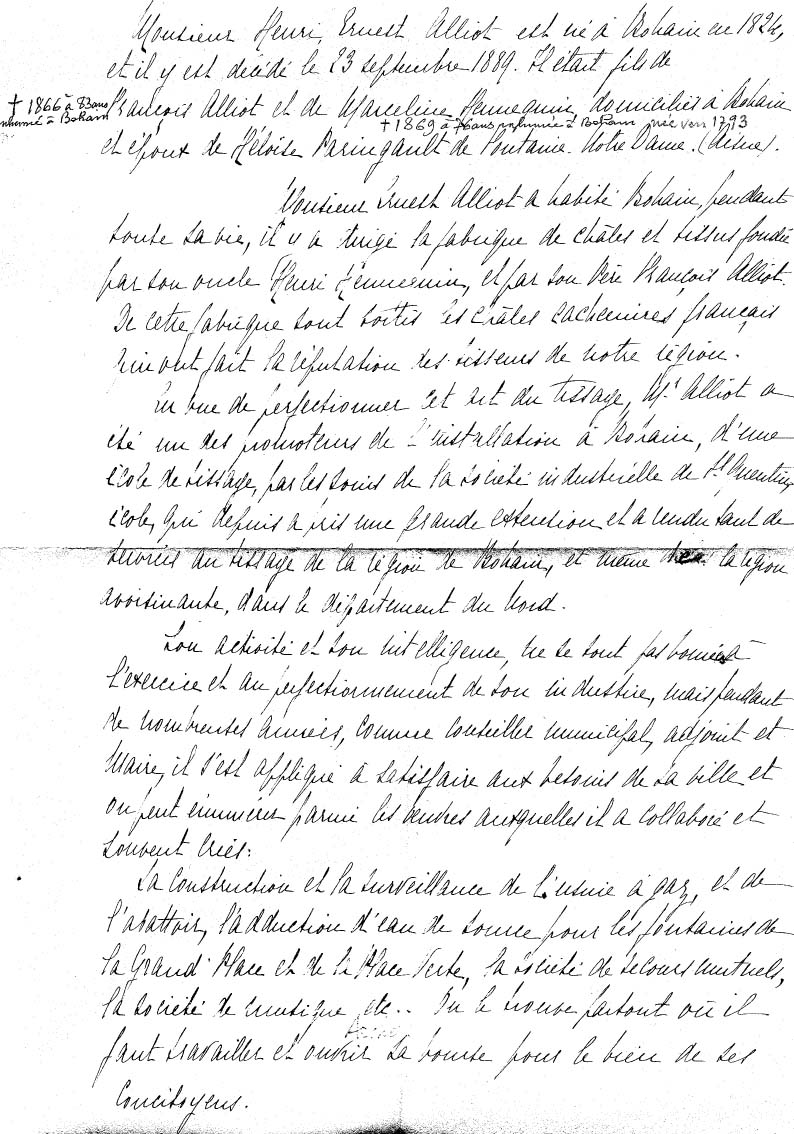 Monsieur Henri, Ernest Alliot est né à Bohain en 1824,
et il y est décédé le 23 septembre 1889. Il était fils de
† 1866 à 83 ans
inhumé à Bohain
François Alliot et de Marceline Hennequin, domiciliés à Bohain
† 1869 à 76 ans inhumée à Bohain née vers 1793
et époux de Héloïse Paringault de Fontaine-Notre Dame. (Aisne).
Monsieur Ernest Alliot a habité Bohain, pendant
toute sa vie, il y a dirigé la fabrique de châles et tissus fondée
par son oncle Henri Hennequin, et par son Père François Alliot.
De cette fabrique sont sortis les châles cachemires français
qui ont fait la réputation des tisseurs de notre région.
En vue de perfectionner cet art du tissage, Mr Alliot a
été un des promoteurs de l'installation à Bohain, d'une
école de tissage, par les soins de la société industrielle de St Quentin,
école, qui depuis a pris une grande extention et a rendu tant de
services au tissage de la région de Bohain, et même la région
avoisinante, dans le département du Nord.
Son activité et son intelligence, ne se sont pas bornées à
l'exercice et au perfectionnement de son industrie, mais pendant
de nombreuses années, comme conseiller municipal, adjoint et
Maire, il s'est appliqué à satisfaire aux besoins de sa ville et
on peut énumérer parmi les œuvres auxquelles il a collaboré et
souvent créés:
La construction et la surveillance de l'usine à gaz, et de
l'abattoir, l'adduction d'eau de source pour les fontaines de
la Grand' Place et de la Place Verte, la société de secours mutuels,
la société de musique, etc.. On le trouve partout où il
faut travailler et ouvrir sa bourse pour le bien de ses
concitoyens.